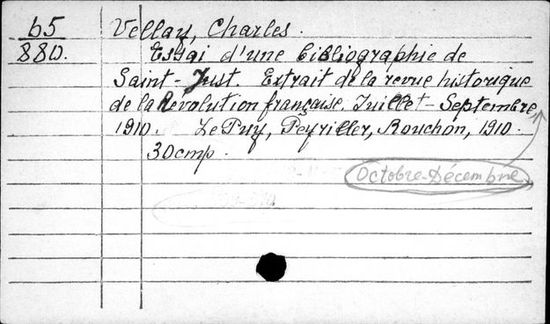 b5
880.
Vellay, Charles.
Essai d'une bibliographie de
Saint-Just. Extrait de la revue historique
de la Révolution française, Juillet-Septembre
1910. Le Puy, Peyriller, Rouchon, 1910.
30cmp.
Octobre-Décembre